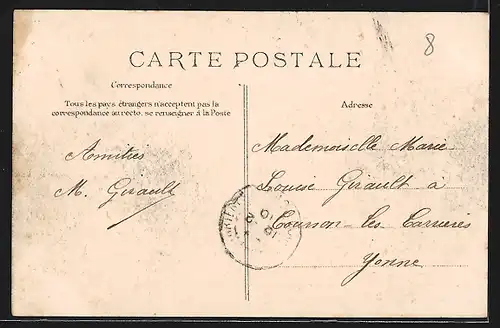 8
CARTE POSTALE
Correspondance
Tous les pays étrangers n'acceptent pas la
correspondance au recto, se renseigner à la Poste
Adresse
Amitiés
M. Girault
Mademoiselle Marie
Louise Girault à
Courson-les-Carrières
Yonne